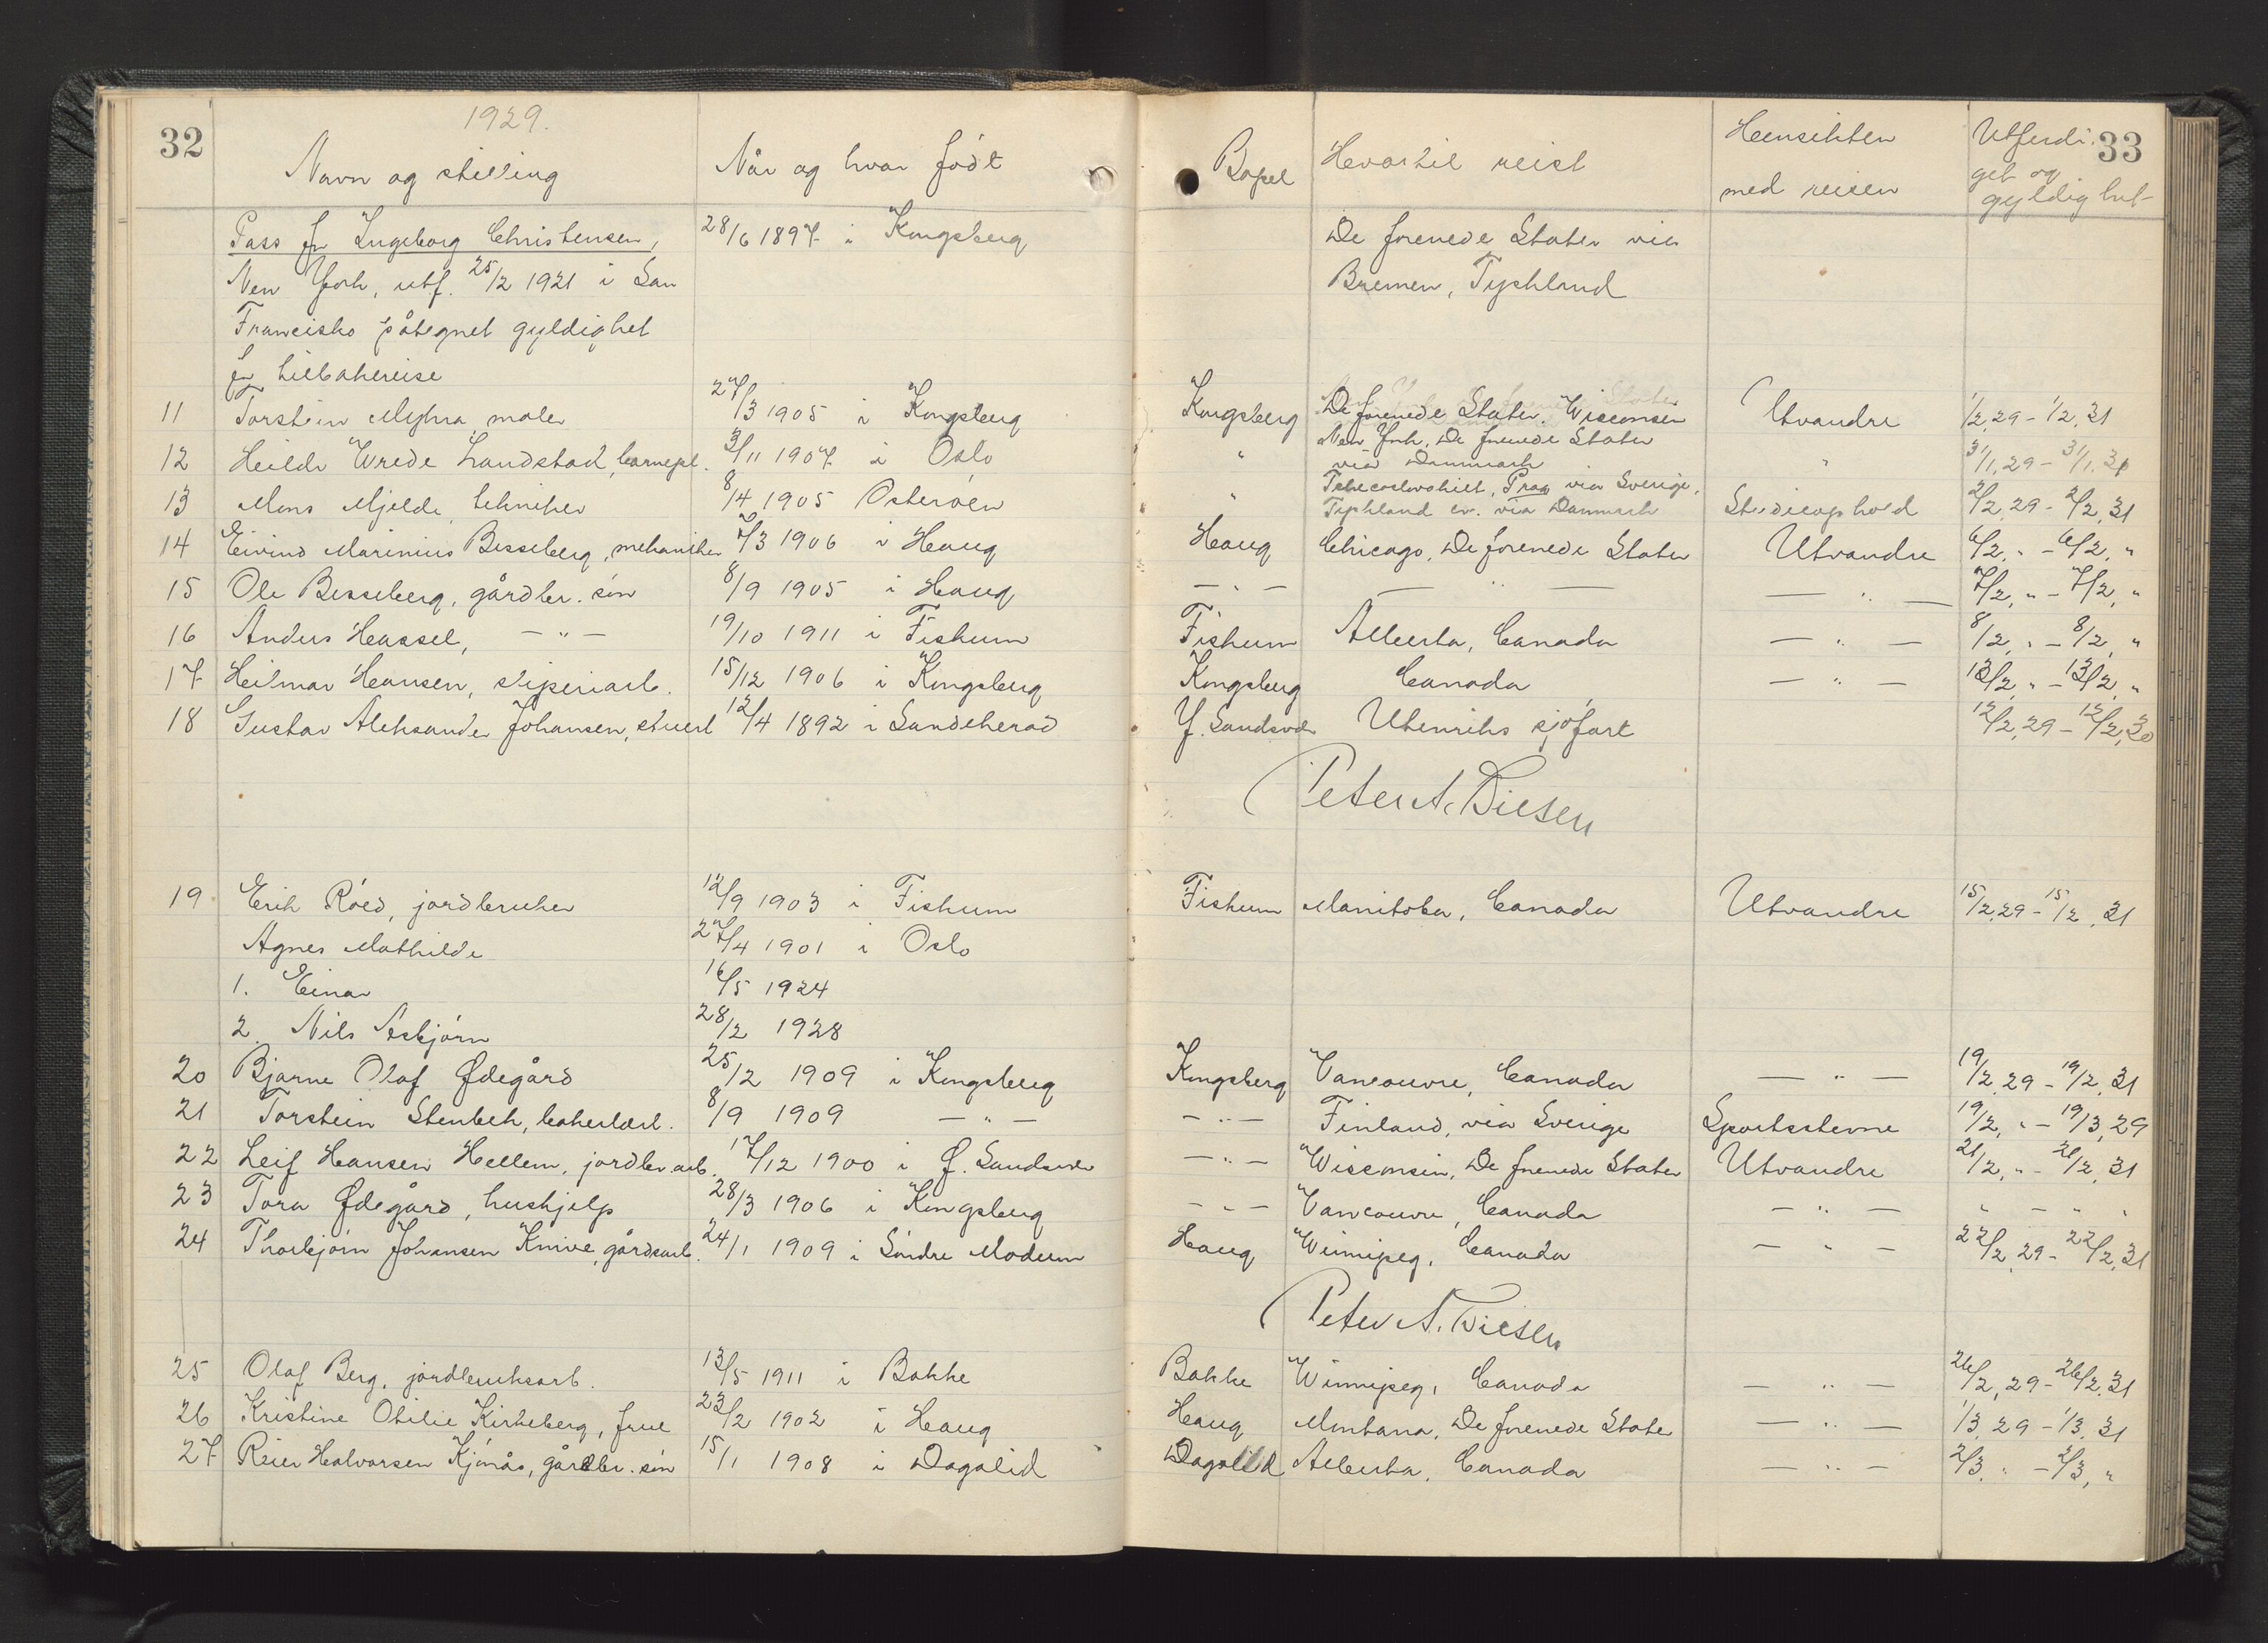 32
1929.
Navn og stilling
Når og hvor født
Bopel
Hvortil reist
Hensikten
med reisen
Utferdi-
get og
gyldighet
33
Pass for Ingeborg Christensen, 28/6 1897 i Kongsberg De forenede Stater via
New York, utf. 25/2 1921 i San Bremen, Tyskland
Francisko påtegnet gyldighet
for tilbakereise
11 Torstein Myhra, maler 27/3 1905 i Kongsberg Kongsberg De forenede Stater. Wisconsin Utvandre 1/2.29 - 1/2.31
12 Hilda Wrede Landstad, barnepl. 3/11 1907 i Oslo " New York, De forenede Stater " 31/1.29 - 31/1.31
via Danmark
13 Mons Mjelde, tekniker 8/4 1905 Osterøen " Tsjecoslovakiet, Prag via Sverige,
Tyskland ev. via Danmark Studieophold 2/2.29 - 2/2.31
14 Eivind Marinius Besseberg, mekaniker 7/3 1906 i Haug Haug Chicago, De forenede Stater Utvandre 6/2. " - 6/2. "
15 Ole Besseberg, gårdbr. søn 8/9 1905 i Haug — " — — " — — " — 7/2. " - 7/2. "
16 Anders Hassel, — " — 19/10 1911 i Fiskum Fiskum Alberta, Canada — " — 8/2. " - 8/2. "
17 Hilmar Hansen, sliperiarb. 15/12 1906 i Kongsberg Kongsberg Canada — " — 13/2. " - 13/2. "
18 Gustav Aleksander Johansen, stuert 12/4 1892 i Sandeherad Y. Sandsvær Utenriks sjøfart 12/2.29 - 12/2.30
Peter A. Diesen
19 Erik Røed, jordbruker 12/9 1903 i Fiskum Fiskum Manitoba, Canada Utvandre 15/2.29 - 15/2.31
Agnes Mathilde 27/4 1901 i Oslo
1. Einar 16/5 1924
2. Nils Asbjørn 28/2 1928
20 Bjarne Olaf Ødegård 25/2 1909 i Kongsberg Kongsberg Vancouvre, Canada — " — 19/2.29 - 19/2.31
21 Torstein Stenbek, bakerlærl. 8/9 1909 — " — — " — Finland, via Sverige Sportsstevne 19/2. " - 19/3.29
22 Leif Hansen Hellem, jordbr.arb. 17/12 1900 i Ø. Sandsvær — " — Wisconsin, De forenede Stater Utvandre 21/2. " - 21/2.31
23 Tora Ødegård, hushjelp 28/3 1906 i Kongsberg — " — Vancouvre, Canada — " — " — " "
24 Thorbjørn Johansen Knive, gårdsarb. 24/1 1909 i Søndre Modum Haug Winnipeg, Canada — " — 22/2.29 - 22/2.31
Peter A. Diesen
25 Olaf Berg, jordbruksarb. 13/5 1911 i Bakke Bakke Winnipeg, Canada — " — 26/2.29 - 26/2.31
26 Kristine Otilie Kirkeberg, frue 23/2 1902 i Haug Haug Montana, De forenede Stater — " — 1/3.29 - 1/3.31
27 Reier Halvorsen Kjønås, gårdbr. søn 15/1 1908 i Dagalid Dagalid Alberta, Canada — " — 2/3. " - 2/3. "